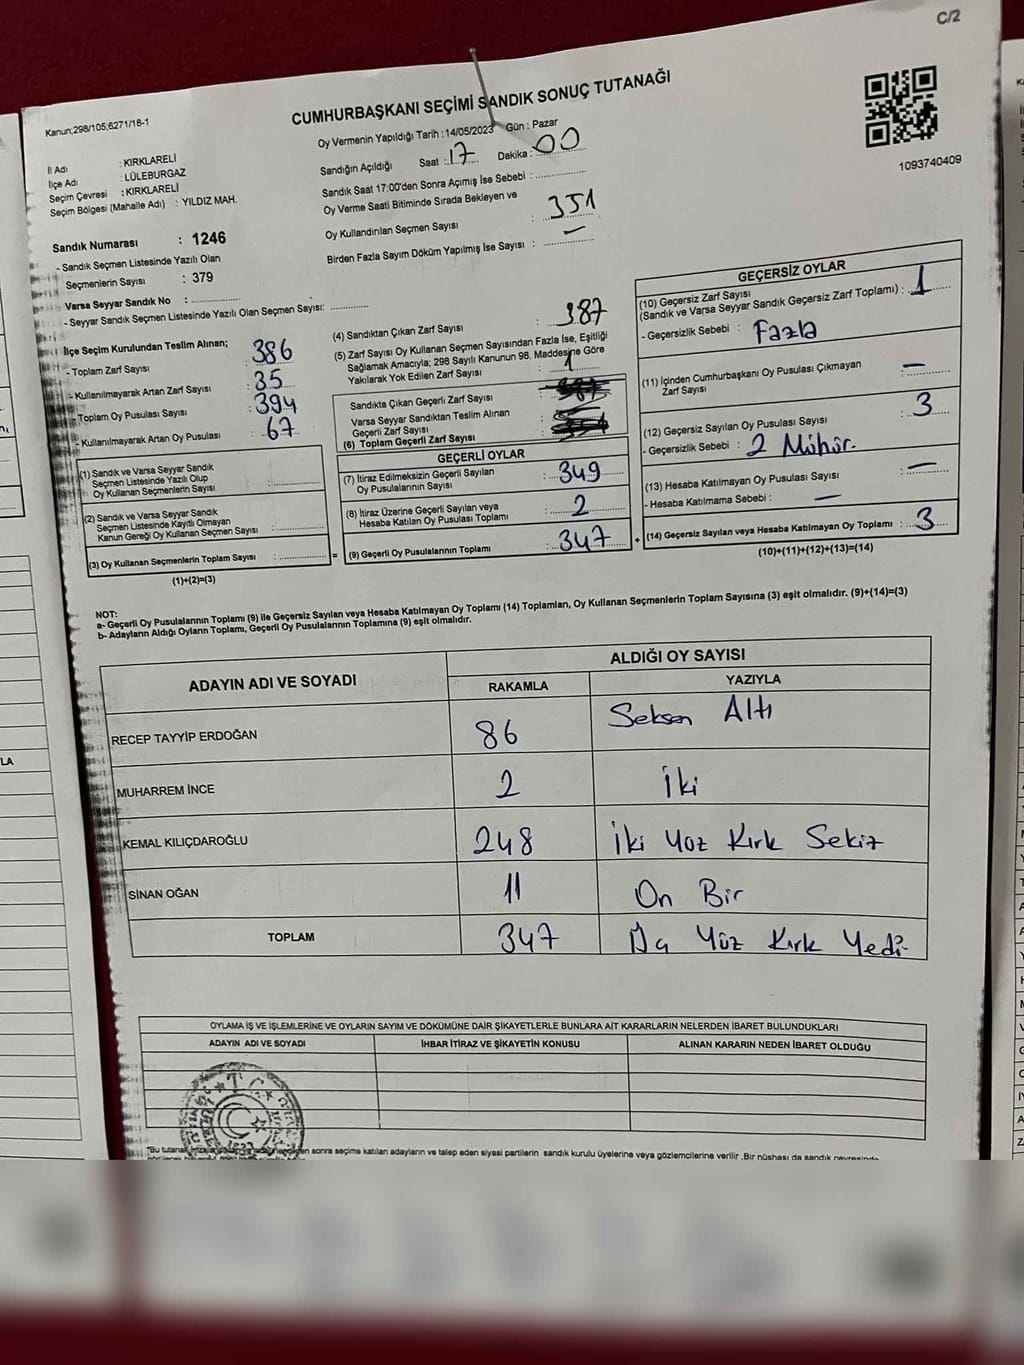 C/2
Kanun;298/105;6271/18-1
CUMHURBAŞKANI SEÇİMİ SANDIK SONUÇ TUTANAĞI
Oy Vermenin Yapıldığı Tarih :14/05/2023 Gün : Pazar
1093740409
İl Adı : KIRKLARELİ
İlçe Adı : LÜLEBURGAZ
Seçim Çevresi : KIRKLARELİ
Seçim Bölgesi (Mahalle Adı) : YILDIZ MAH.
Sandık Numarası : 1246
- Sandık Seçmen Listesinde Yazılı Olan
Seçmenlerin Sayısı : 379
Varsa Seyyar Sandık No : ..............
- Seyyar Sandık Seçmen Listesinde Yazılı Olan Seçmen Sayısı: ............
Sandığın Açıldığı Saat : 17 Dakika : 00
Sandık Saat 17:00'den Sonra Açımış İse Sebebi : ..............
Oy Verme Saati Bitiminde Sırada Bekleyen ve
Oy Kullandırılan Seçmen Sayısı : 351
Birden Fazla Sayım Döküm Yapılmış İse Sayısı : —
İlçe Seçim Kurulundan Teslim Alınan;
- Toplam Zarf Sayısı : 386
- Kullanılmayarak Artan Zarf Sayısı : 35
- Toplam Oy Pusulası Sayısı : 394
- Kullanılmayarak Artan Oy Pusulası : 67
(1) Sandık ve Varsa Seyyar Sandık
Seçmen Listesinde Yazılı Olup
Oy Kullanan Seçmenlerin Sayısı : ............
(2) Sandık ve Varsa Seyyar Sandık
Seçmen Listesinde Kayıtlı Olmayan
Kanun Gereği Oy Kullanan Seçmen Sayısı : ............
(3) Oy Kullanan Seçmenlerin Toplam Sayısı : ............ =
(1)+(2)=(3)
(4) Sandıktan Çıkan Zarf Sayısı : 387
(5) Zarf Sayısı Oy Kullanan Seçmen Sayısından Fazla İse, Eşitliği
Sağlamak Amacıyla; 298 Sayılı Kanunun 98. Maddesine Göre
Yakılarak Yok Edilen Zarf Sayısı : 1
Sandıkta Çıkan Geçerli Zarf Sayısı
Varsa Seyyar Sandıktan Teslim Alınan
Geçerli Zarf Sayısı
(6) Toplam Geçerli Zarf Sayısı
GEÇERLİ OYLAR
(7) İtiraz Edilmeksizin Geçerli Sayılan
Oy Pusulalarının Sayısı : 349
(8) İtiraz Üzerine Geçerli Sayılan veya
Hesaba Katılan Oy Pusulası Toplamı : 2
(9) Geçerli Oy Pusulalarının Toplamı : 347 +
GEÇERSİZ OYLAR
(10) Geçersiz Zarf Sayısı
(Sandık ve Varsa Seyyar Sandık Geçersiz Zarf Toplamı) : 1
- Geçersizlik Sebebi : Fazla
(11) İçinden Cumhurbaşkanı Oy Pusulası Çıkmayan
Zarf Sayısı : —
(12) Geçersiz Sayılan Oy Pusulası Sayısı : 3
- Geçersizlik Sebebi : 2 Mühür.
(13) Hesaba Katılmayan Oy Pusulası Sayısı : —
- Hesaba Katılmama Sebebi : —
(14) Geçersiz Sayılan veya Hesaba Katılmayan Oy Toplamı : 3
(10)+(11)+(12)+(13)=(14)
NOT:
a- Geçerli Oy Pusulalarının Toplamı (9) ile Geçersiz Sayılan veya Hesaba Katılmayan Oy Toplamı (14) Toplamları, Oy Kullanan Seçmenlerin Toplam Sayısına (3) eşit olmalıdır. (9)+(14)=(3)
b- Adayların Aldığı Oyların Toplamı, Geçerli Oy Pusulalarının Toplamına (9) eşit olmalıdır.
ADAYIN ADI VE SOYADI ALDIĞI OY SAYISI
RAKAMLA YAZIYLA
RECEP TAYYİP ERDOĞAN 86 Seksen Altı
MUHARREM İNCE 2 İki
KEMAL KILIÇDAROĞLU 248 İki Yüz Kırk Sekiz
SİNAN OĞAN 11 On Bir
TOPLAM 347 Üç Yüz Kırk Yedi
OYLAMA İŞ VE İŞLEMLERİNE VE OYLARIN SAYIM VE DÖKÜMÜNE DAİR ŞİKAYETLERLE BUNLARA AİT KARARLARIN NELERDEN İBARET BULUNDUKLARI
ADAYIN ADI VE SOYADI İHBAR İTİRAZ VE ŞİKAYETİN KONUSU ALINAN KARARIN NEDEN İBARET OLDUĞU
T.C.
sonra seçime katılan adayların ve talep eden siyasi partilerin sandık kurulu üyelerine veya gözlemcilerine verilir .Bir nüshası da sandık çevresinde